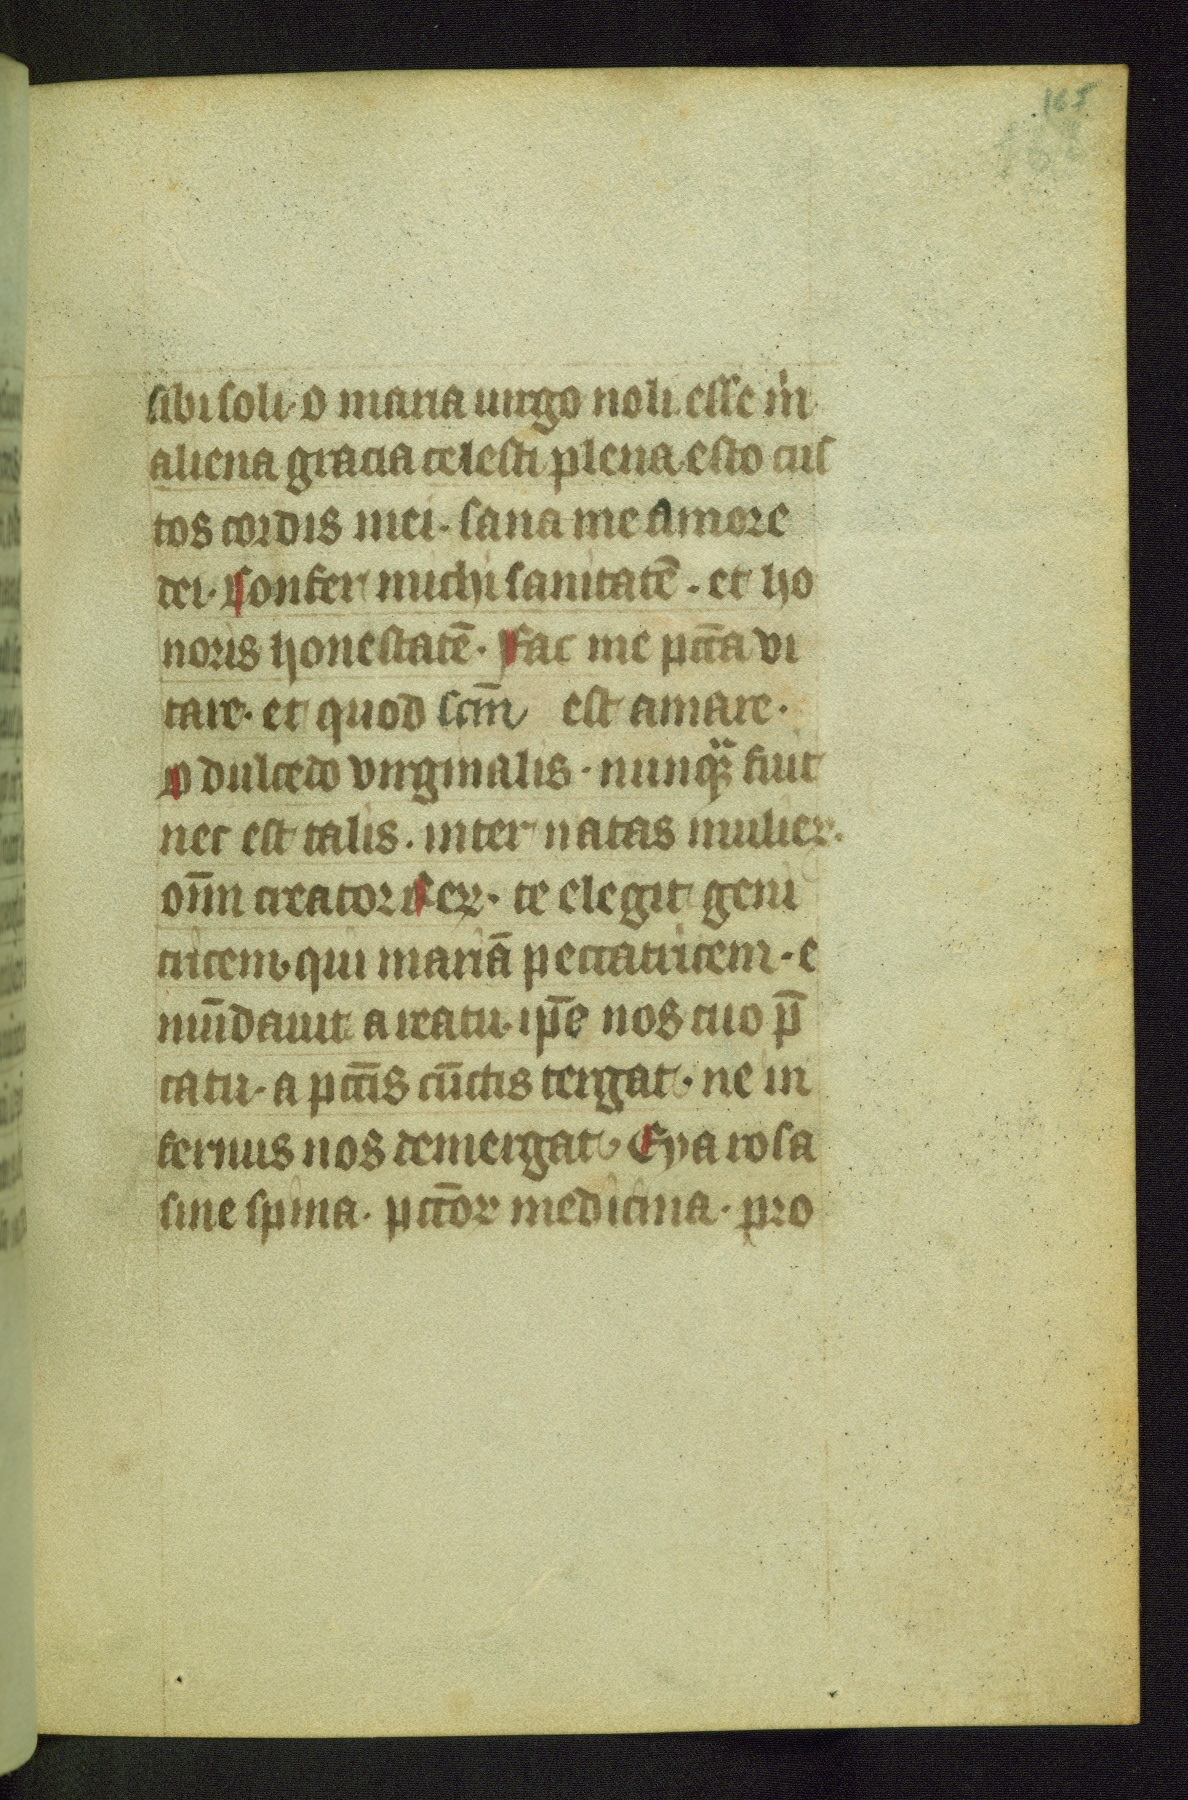 165
sibi soli· o maria uirgo noli esse m̄
aliena gracia celesti plena esto cus
tos cordis mei· sana me amore
dei· Confer michi sanitatē· et ho
noris honestatē· Fac me pctā vi
tare· et quod scm̄ est amare·
O dulcedo virginalis· nunqᷓ fuit
nec est talis· inter natas mulier·
om̄n creator et· te elegit geni
tricem· qui mariā peccatricem· e
mūdauit a reatu· ipē nos tuo p̄
catu· a pctīs cūctis tergat· ne in
fernus nos demergat· Eya rosa
sine spina· pctōr medicina· pro